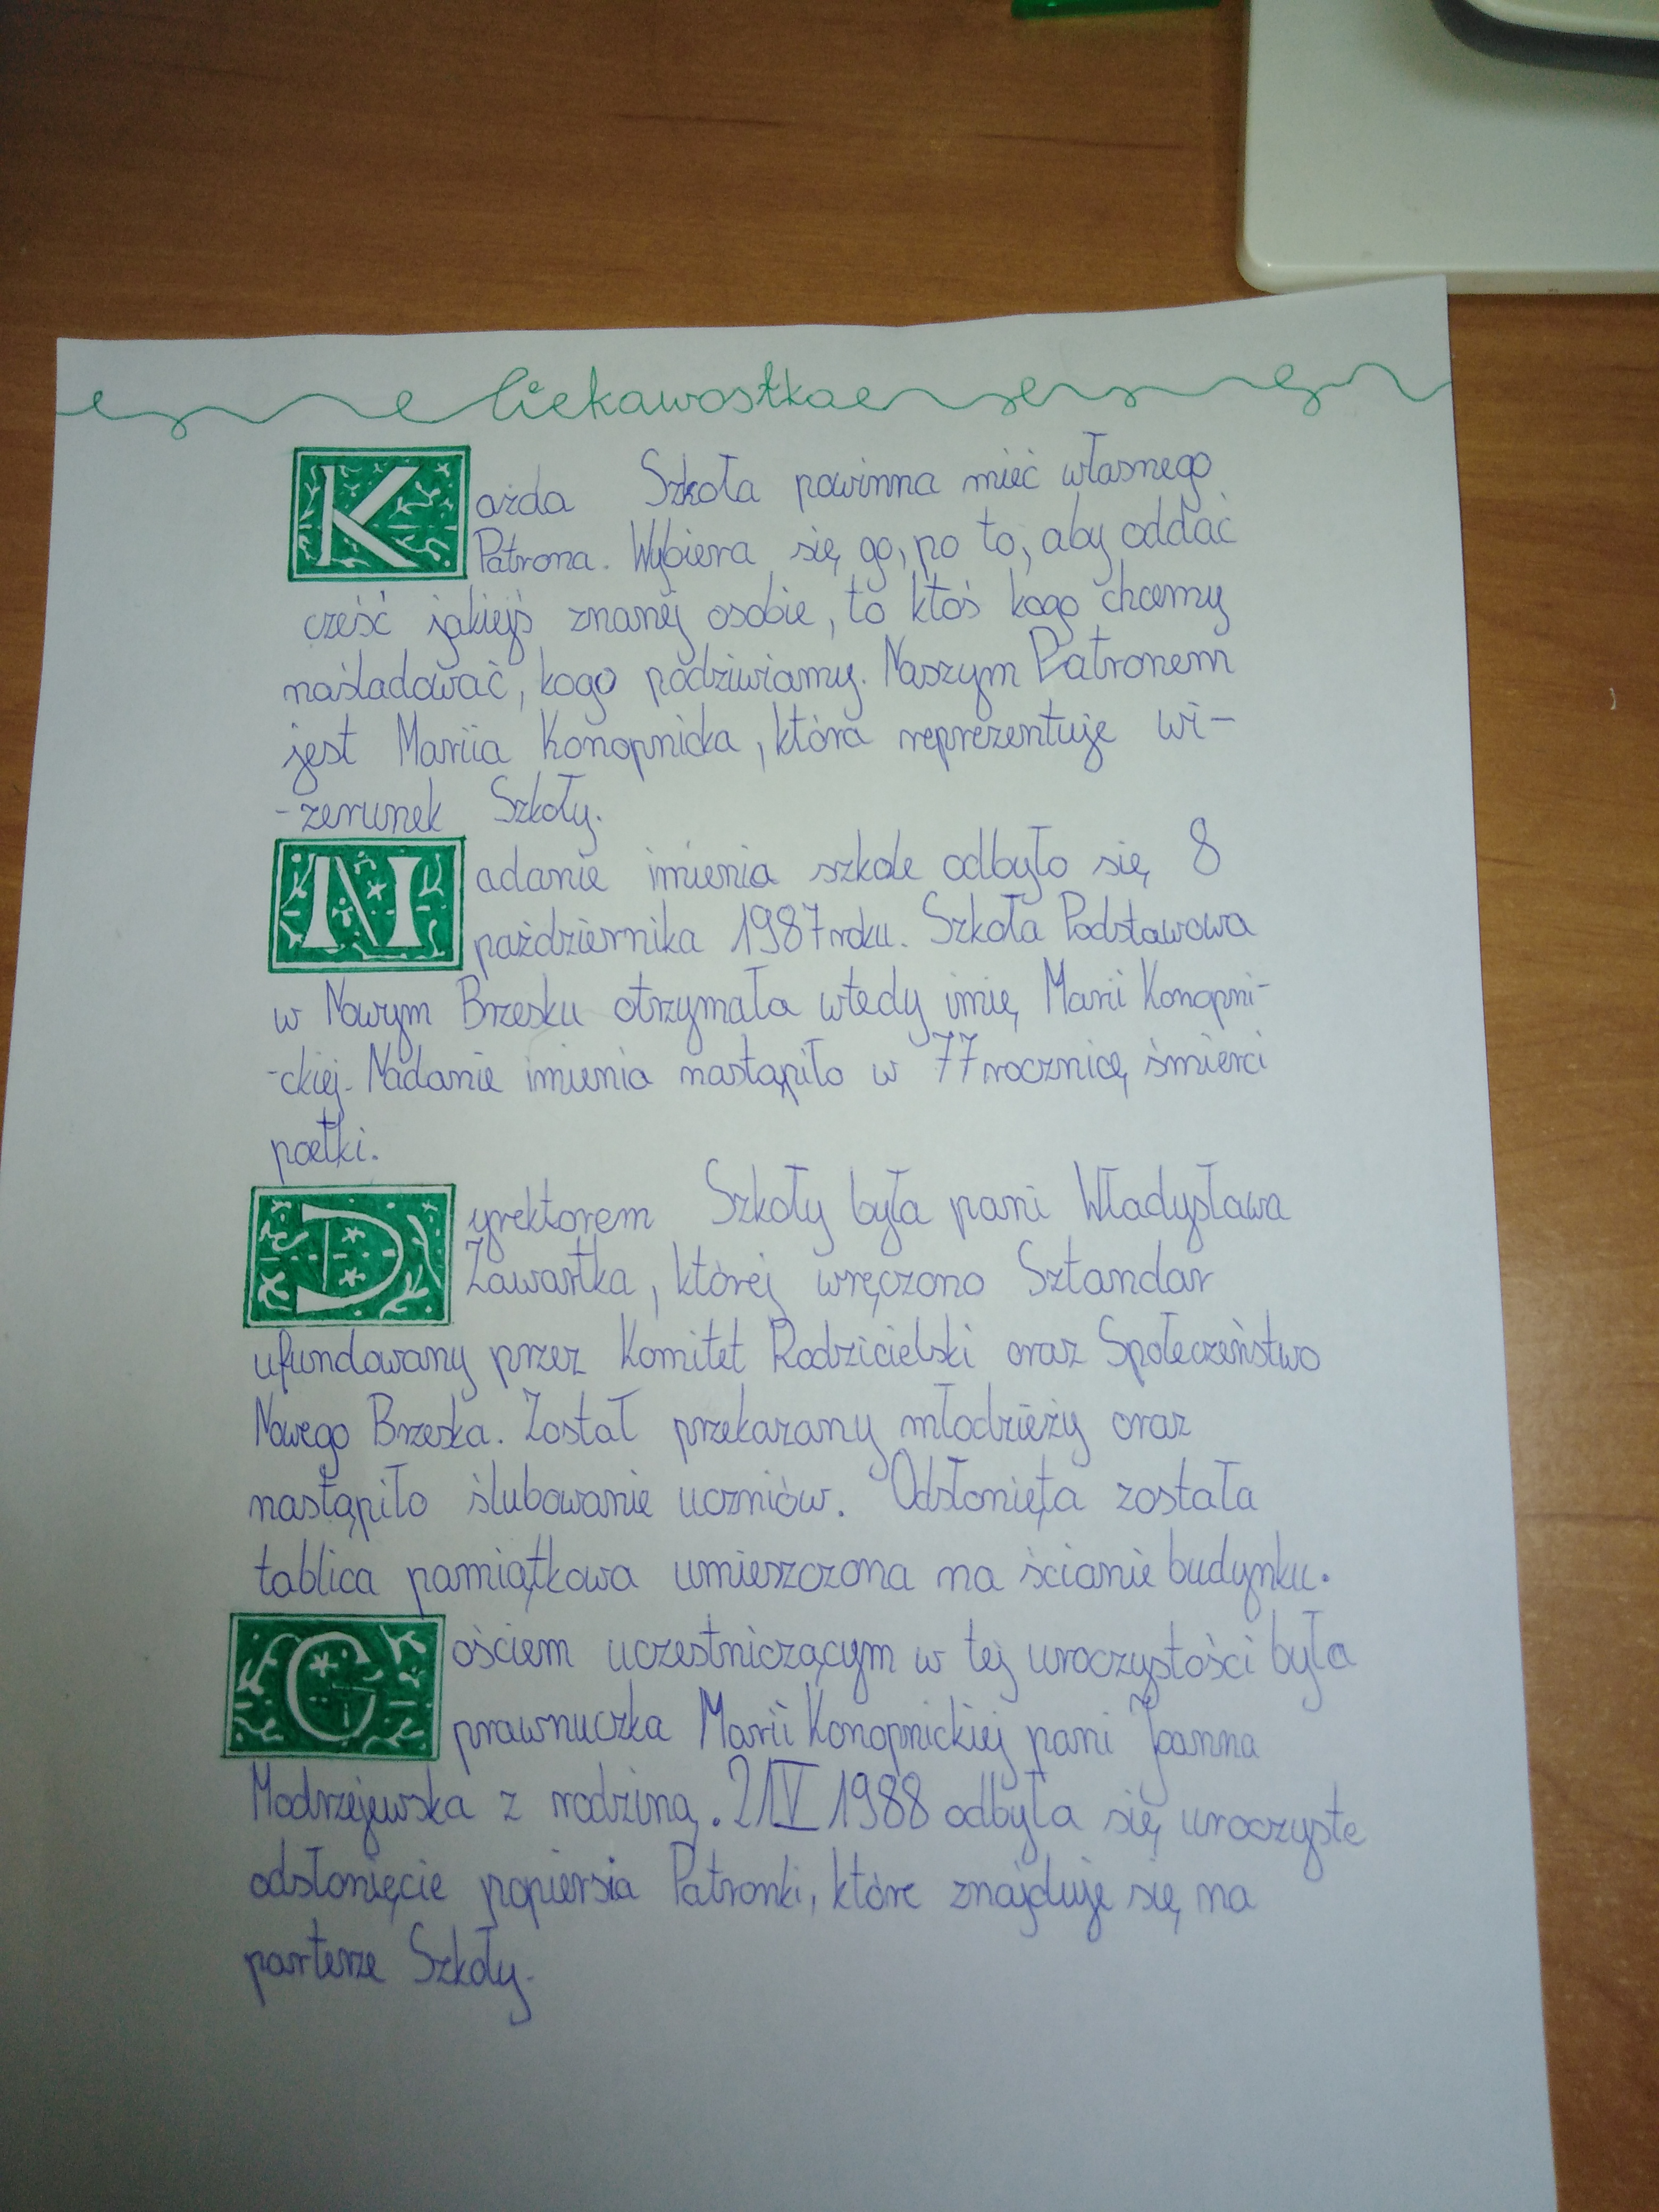 Ciekawostka
Każda Szkoła powinna mieć własnego
Patrona. Wybiera się go, po to, aby oddać
cześć jakiejś znanej osobie, to ktoś kogo chcemy
naśladować, kogo podziwiamy. Naszym Patronem
jest Mariia Konopnicka, która reprezentuje wi-
-zerunek Szkoły.
Nadanie imienia szkole odbyło się 8
październiika 1987 roku. Szkoła Podstawowa
w Nowym Brzesku otrzymała wtedy imię Marii Konopni-
-ckiej. Nadanie imienia nastąpiło w 77 rocznicę śmierci
poetki.
Dyrektorem Szkoły była pani Władysława
Zawartka, której wręczono Sztandar
ufundowany przez Komitet Rodzicielski oraz Społeczeństwo
Nowego Brzeska. Został przekazany młodzieży oraz
nastąpiło ślubowanie uczniów. Odsłonięta została
tablica pamiątkowa umieszczona na ścianie budynku.
Gościem uczestniczącym w tej uroczystości była
prawnuczka Marii Konopnickiej pani Joanna
Modrzejewska z rodziną. 21 V 1988 odbyła się uroczyste
odsłonięcie popiersia Patronki, które znajduje się na
parterze Szkoły.